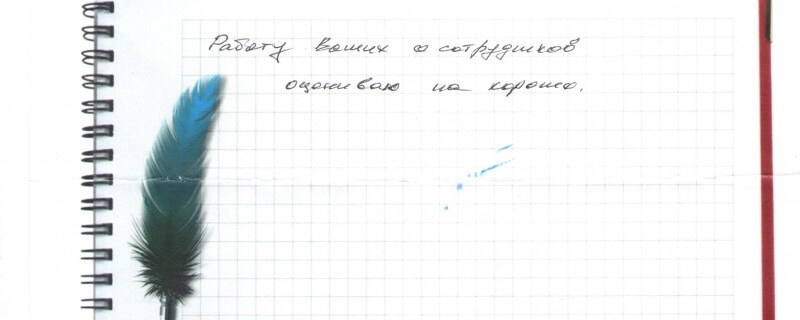 Работу Ваших сотрудников
оцениваю на хорошо.